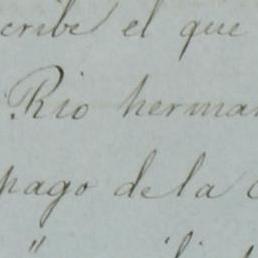 cribe el que
Rio herman
pago de la
"